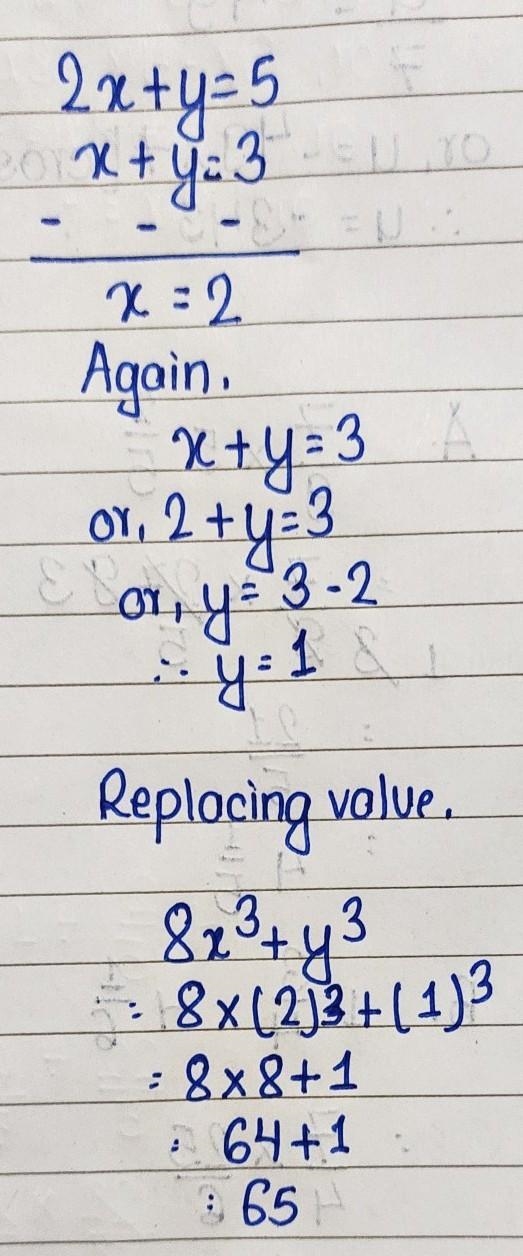 2x+y=5
x+y=3
- - -
x=2
Again,
x+y=3
or, 2+y=3
or, y=3-2
∴ y=1
Replacing value.
8x³+y³
= 8×(2)3+(1)³
= 8×8+1
= 64+1
= 65